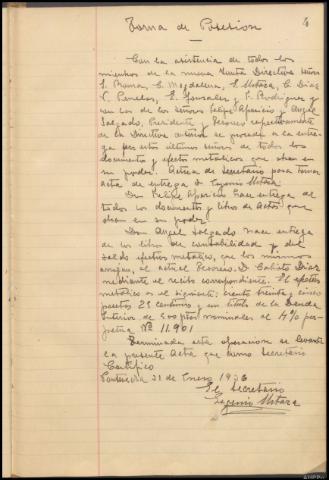 6
Toma de Posesion
Con la asistencia de todos los
miembros de la nueva Junta Directiva señores
S. Poma, C. Magdalena, E. Motaza, C. Diaz
V. Penelas, E. Gonzalez y F. Rodriguez y
con los de los señores Felipe Aparicio y Angel
Salgado, Presidente y Tesorero respectivamente
de la Directiva anterior se procede a la entre-
ga por estos últimos señores de todos los
documentos y efectos metálicos que obran en
su poder. Actúa de Secretario para tomar
acta de entrega D. Eugenio Motaza
Don Felipe Aparicio hace entrega de
todos los documentos y libro de Actas que
obran en su poder
Don Angel Salgado hace entrega
de los libros de contabilidad y del
saldo efectivo metálico, que los mismos
arrojan, al actual Tesorero D. Calixto Diaz
mediante el recibo correspondiente. El efectivo
metálico es el siguiente: ciento treinta y cinco
pesetas 25 centimos y un titulo de la Deuda
Interior de 500 ptas nominales al 4% per-
petua Nº 11.901
Terminada esta operacion se levanta
la presente Acta que como Secretario
Certifico
Pontevedra 31 de Enero 1936
El Secretario
Eugenio Motaza